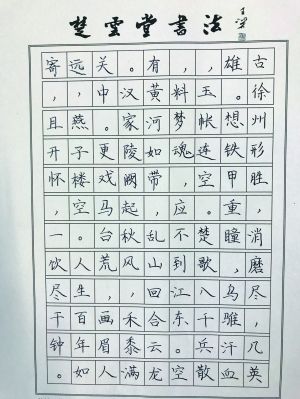 楚雲堂書法
古徐州形胜,消磨尽,几英
雄。想铁甲重瞳,乌骓汗血
,玉帐连空。楚歌八千兵散
,料梦魂,应不到江东。空
有黄河如带,乱山回合云龙
。汉家陵阙起秋风,禾黍满
关中。更戏马台荒,画眉人
远,燕子楼空。人生百年如
寄,且开怀,一饮尽千钟。